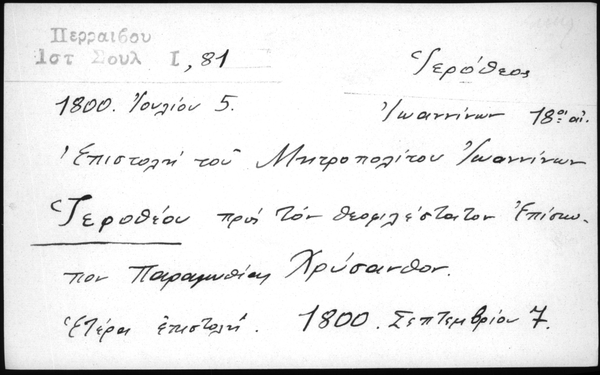 Περραιβου
Ιστ Σουλ Ι, 81
Ἱερόθεος
1800. Ἰουλίου 5.
Ἰωαννίνων 18ος αἰ.
Ἐπιστολή τοῦ Μητροπολίτου Ἰωαννίνων
Ἱεροθέου πρός τόν θεοφιλέστατον Ἐπίσκο-
πον Παραμυθίας Χρύσανθον.
Ἑτέρα ἐπιστολή. 1800. Σεπτεμβρίου 7.